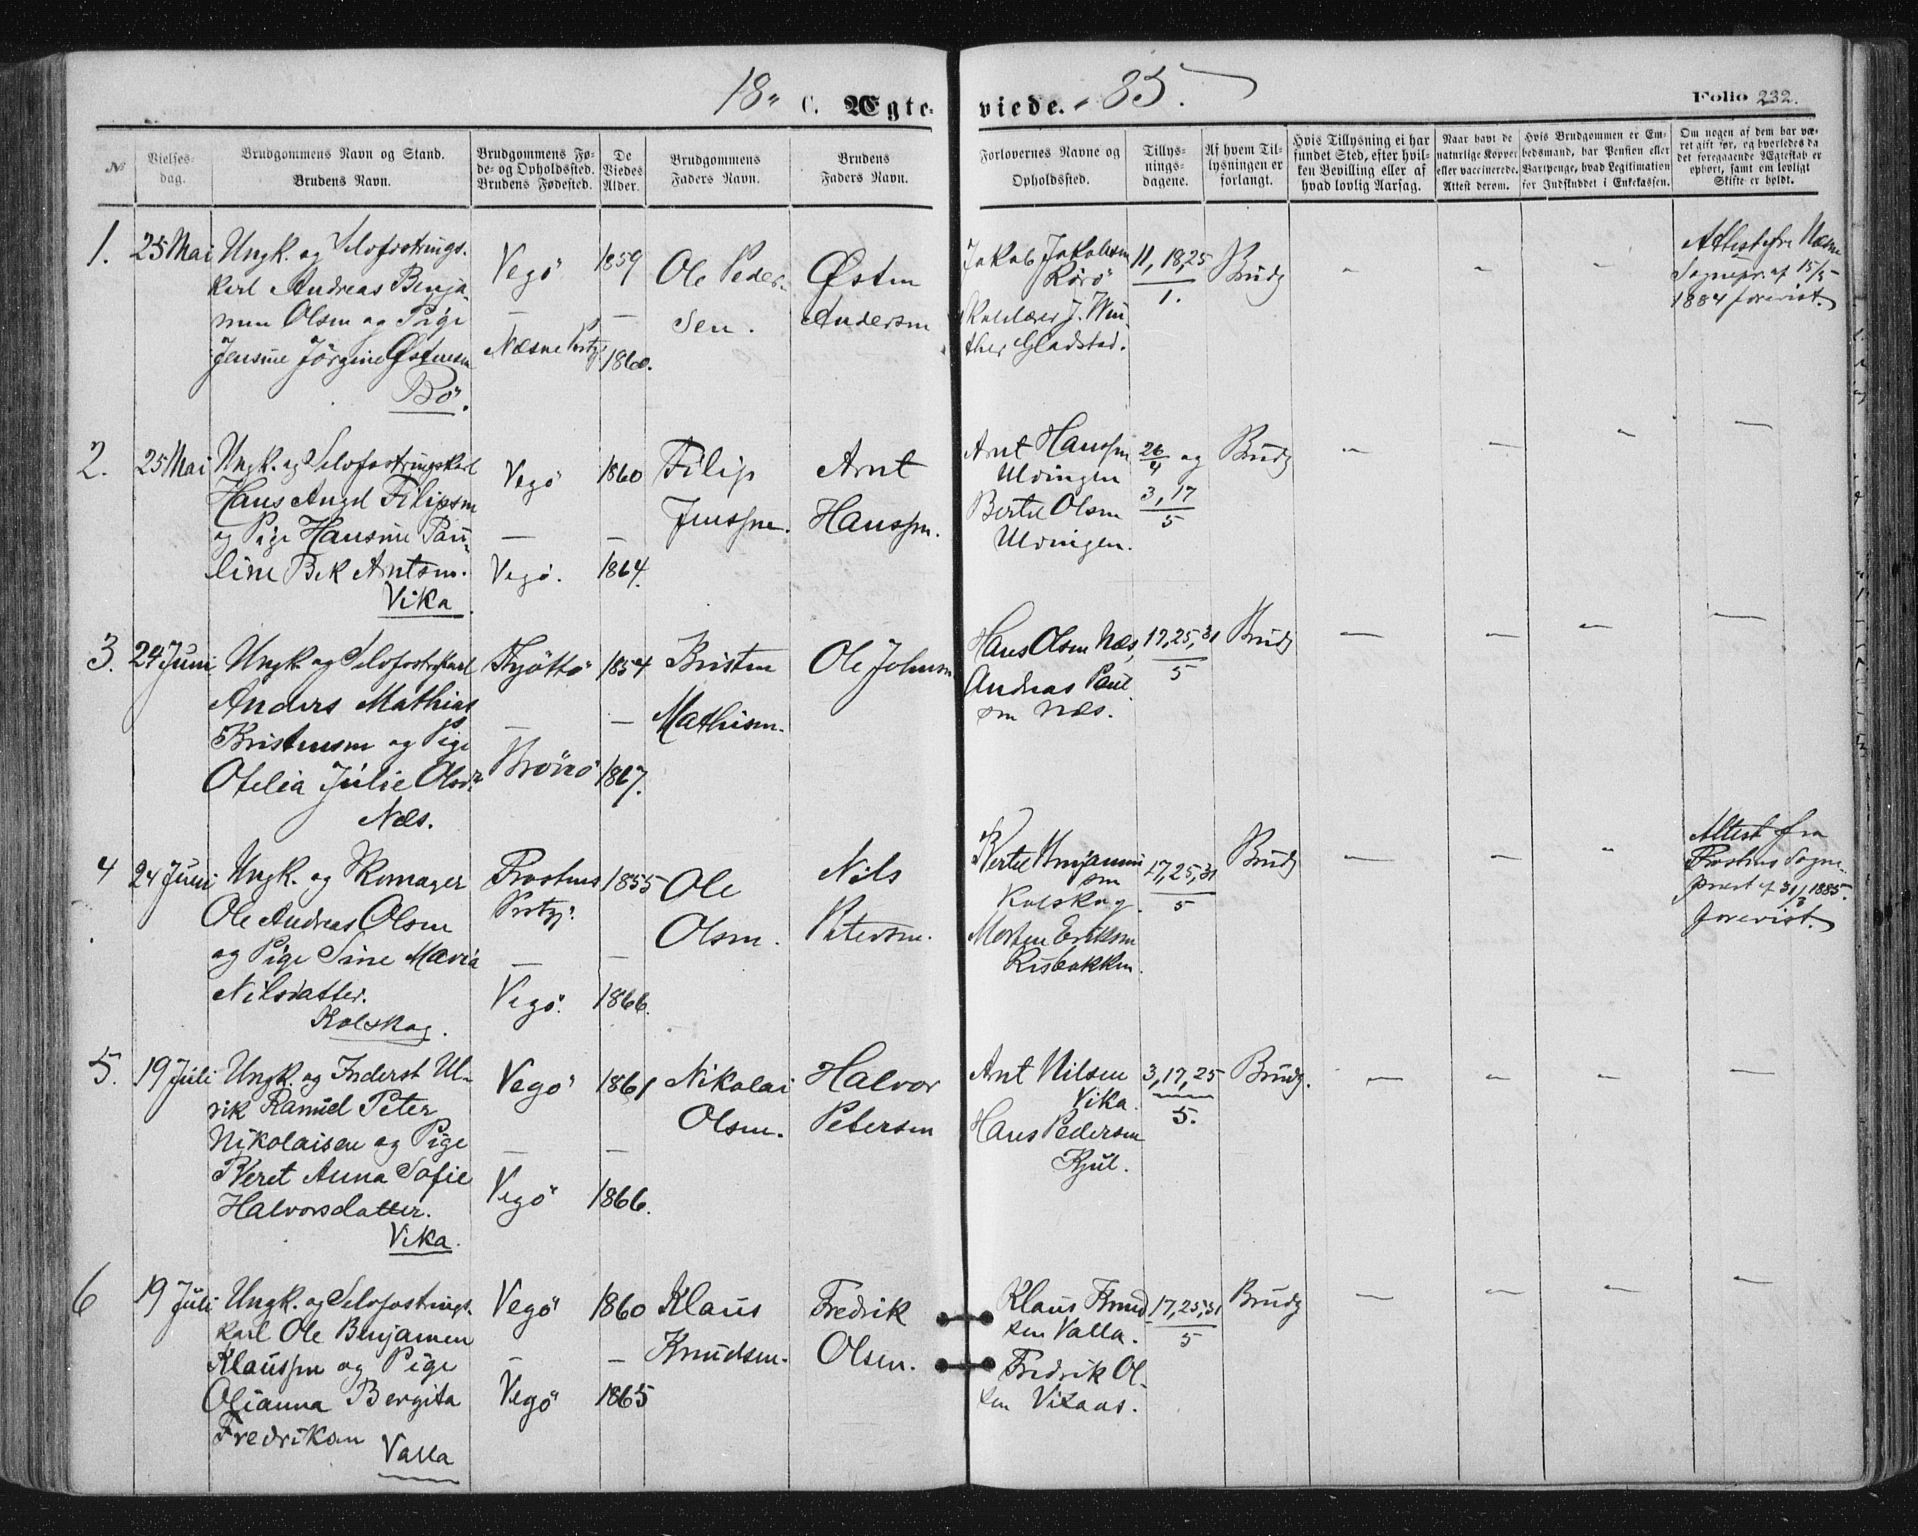 18 C. Ægteviede. 85.
Folio 232.
No
Vielses-
dag.
Brudgommens Navn og Stand.
Brudens Navn.
Brudgommens Fø-
de- og Opholdssted.
Brudens Fødested.
De
Viedes
Alder.
Brudgommens
Faders Navn.
Brudens
Faders Navn.
Forlovernes Navne og
Opholdssted.
Tillys-
nings-
dagene.
Af hvem Til-
lysningen er
forlangt.
Hvis Tillysning ei har
fundet Sted, efter hvil-
ken Bevilling eller af
hvad lovlig Aarsag.
Naar havt de
naturlige Kopper
eller vaccinerede.
Attest derom.
Hvis Brudgommen er Em-
bedsmand, har Pension eller
Vartpenge, hvad Legitimation
for Indskuddet i Enkekassen.
Om nogen af dem har væ-
ret gift før, og hvorledes da
det foregaaende Ægteskab er
ophørt, samt om lovligt
Skifte er holdt.
1.
25 Mai
Ungk. og Selvfostrings-
karl Andreas Benja-
men Olsen og Pige
Jensine Jörgine Østensen
Bö.
Vegö
—
Næsne Prstgj.
1859
—
1860.
Ole Peder-
sen.
Østen
Andersen
Jakob Jakobsen
Rörö
J. Win-
ther Gladstad.
11, 18, 25
1.
Brudg
Attest fra Næsne
Sognepr. af 15/5
1884 forevist.
2.
25 Mai
Ungk. og Selvfostringskarl
Hans Angel Filipsen
og Pige Hansine Pau-
line Bek Arntsen.
Vika
Vegö
—
Vegö.
1860
—
1864.
Filip
Jenssen.
Arnt
Hanssen.
Arnt Hanssen
Ulvingen
Bertel Olsen
Ulvingen.
26/4 og
3, 17
5
Brudg
3.
24 Juni
Ungk. og Selvfostrkarl
Anders Mathias
Kristensen og Pige
Ofelia Julie Olsdr
Næs.
Tjöttö
—
Brönö
1854
—
1867.
Kristen
Mathisen.
Ole Johnsen
Hans Olsen Næs,
Andreas Paul-
sen Næs.
17, 25, 31
5
Brudg
4
24 Juni
Ungk. og Skomager
Ole Andreas Olsen
og Pige Sine Maria
Nilsdatter.
Kolskog.
Frostens
Prstgj.
—
Vegö.
1855
—
1866.
Ole
Olsen.
Nils
Petersen.
Bertel Benjamin
sen
Kolskog.
Morten Eriksen
Risbakken.
17, 25, 31
5
Brudg
Attest fra
Frostens Sogne-
prest af 31/3 1885.
forevist.
5.
19 Juli
Ungk. og Inderst Ul-
rik Samuel Peter
Nikolaisen og Pige
Beret Anna Sofie
Halvorsdatter.
Vika.
Vegö
—
Vegö
1861
—
1866.
Nikolai
Olsen.
Halvor
Petersen
Arnt Nilsen
Vika.
Hans Pedersen
Kjul.
3, 17, 25
5.
Brudg.
6
19 Juli
Ungk. og Selvfostrings-
karl Ole Benjamen
Klaussen og Pige
Olianna Bergita
Fredriksen
Valla
Vegö
—
Vegö
1860
—
1865
Klaus
Knudsen.
Fredrik
Olsen.
Klaus Knud
sen Valla.
Fredrik Ol-
sen Vikaas.
17, 25, 31
5
Brudg